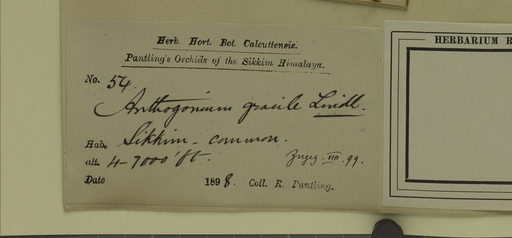 Herb. Hort. Bot. Calcuttensis.
Pantling's Orchids of the Sikkim Himalaya.
No. 54.
Anthogonium gracile Lindl.
Hab. Sikkim - common.
alt. 4-7000 ft.
VIII. 99.
Date 1898. Coll. R. Pantling.
HERBARIUM R